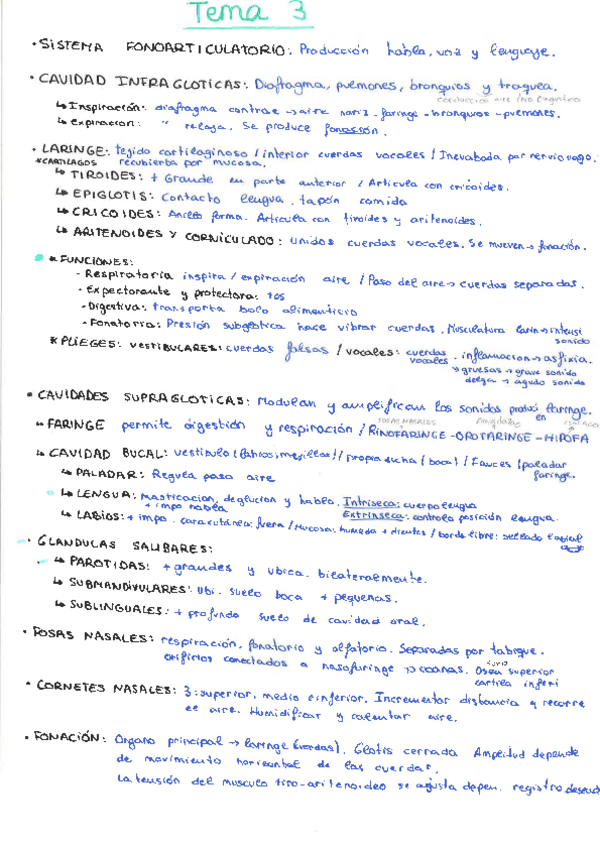 Tema 3
• SISTEMA FONOARTICULATORIO: Producción habla, voz y lenguaje.
• CAVIDAD INFRAGLOTICAS: Diafragma, pulmones, bronquios y traquea.
conducción aire
↳ Inspiración: diafragma contrae → aire nariz - faringe - bronquios - pulmones.
↳ Expiracion: " relaja. Se produce fonación.
• LARINGE: tejido cartilaginoso / interior cuerdas vocales / Inevabada por nervio vago.
*CARTILAGOS recubierta por mucosa.
↳ TIROIDES: + Grande en parte anterior / Articula con cricoides.
↳ EPIGLOTIS: Contacto lengua, tapón comida
↳ CRICOIDES: Anillo forma. Articula con tiroides y aritenoides.
↳ ARITENOIDES Y CORNICULADO: Unidos cuerdas vocales. Se mueven → fonación.
* FUNCIONES:
- Respiratoria inspira / expiración aire / Paso del aire → cuerdas separadas.
- Expectorante y protectora: tos
- Digestiva: transporta bolo alimenticio
- Fonatoria: Presión subglótica hace vibrar cuerdas. Musculatura larin → intensi
sonido
* PLIEGES: VESTIBULARES: cuerdas falsas / vocales: cuerdas vocales. inflamacion → asfixia.
→ gruesas → grave sonido
delga → agudo sonido
• CAVIDADES SUPRAGLOTICAS: Modulan y amplifican los sonidos produci en faringe.
↳ FARINGE permite digestión y respiración / RINOFARINGE - OROFARINGE - HIPOFA
amigdalas
↳ CAVIDAD BUCAL: vestibulo (labios, mejillas) / propia dicha (boca) / Fauces (paladar
faringe.
↳ PALADAR: Regula paso aire
↳ LENGUA: masticacion, deglucion y habla. Intriseca: cuerpo lengua
+ impo habla Extrinseca: controla posición lengua.
↳ LABIOS: + impo. cara cutánea: fuera / Mucosa: humeda + dientes / borde libre: sellado
• GLANDULAS SALIBARES:
↳ PAROTIDAS: + grandes y ubica. bilateralmente.
↳ SUBMANDIVULARES: Ubi. suelo boca + pequeñas.
↳ SUBLINGUALES: + profundo suelo de cavidad oral.
• FOSAS NASALES: respiración, fonatorio y olfatorio. Separadas por tabique.
orifirios conectados a nasofaringe → coanas. Osea superior
cartila inferi
• CORNETES NASALES: 3: superior, medio e inferior. Incrementar distancia q recorre
ee aire. Humidificar y calentar aire.
• FONACIÓN: Organo principal → laringe (cuerdas). Glotis cerrada Amplitud depende
de movimiento horizontal de las cuerdas.
La tensión del musculo tiro-aritenoideo se ajusta depen. registro